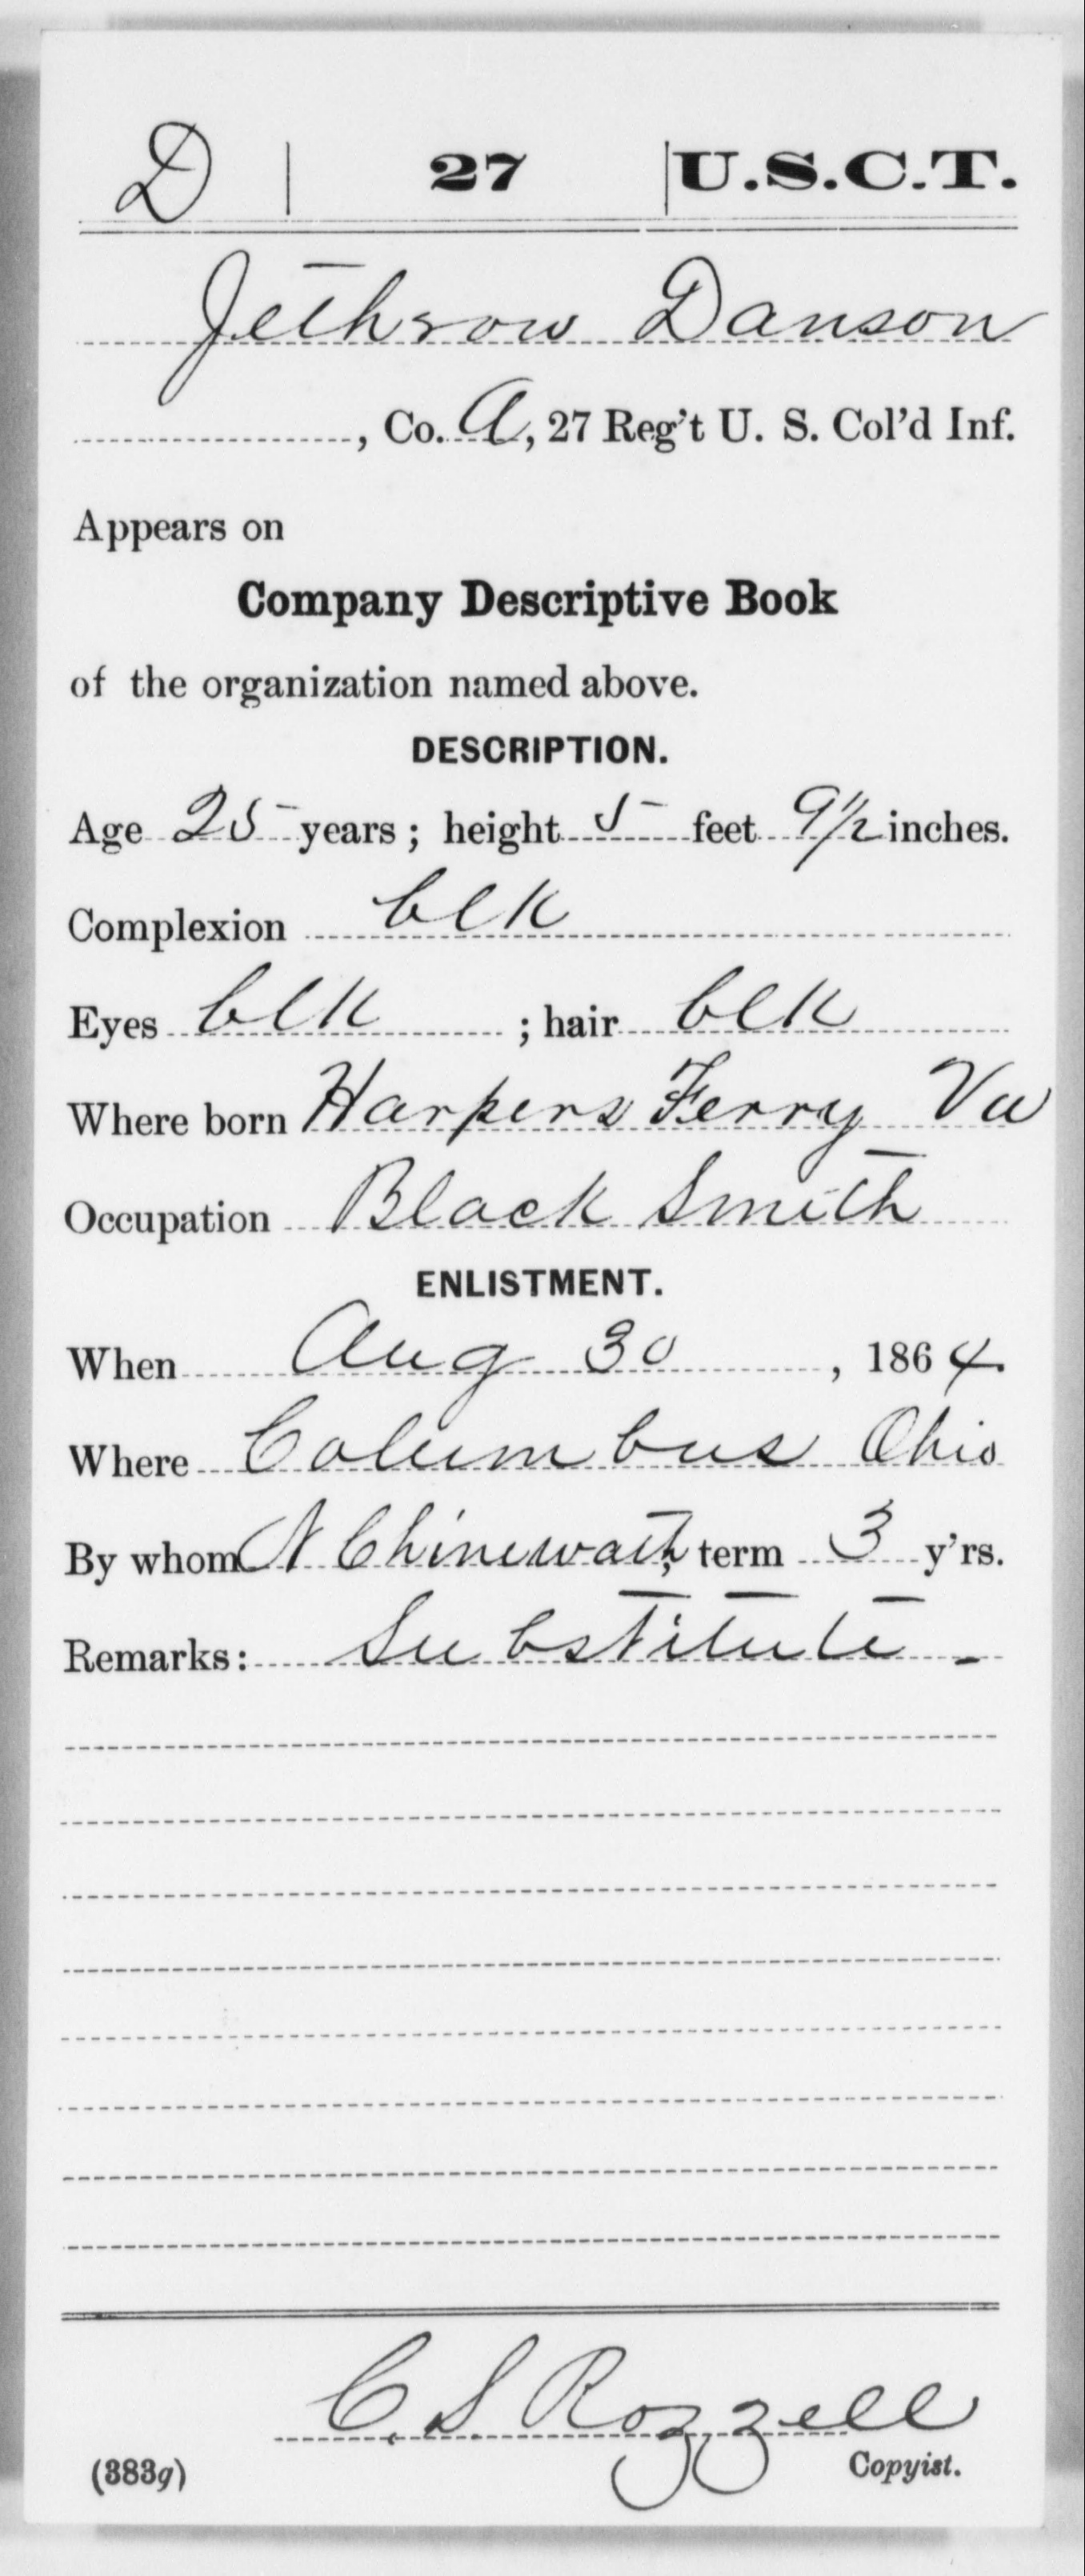 D | 27 | U.S.C.T.
Jethrow Danson
, Co. A, 27 Reg't U. S. Col'd Inf.
Appears on
Company Descriptive Book
of the organization named above.
DESCRIPTION.
Age 25 years; height 5 feet 9 1/2 inches.
Complexion blk
Eyes blk ; hair blk
Where born Harpers Ferry Va
Occupation Black Smith
ENLISTMENT.
When Aug 30, 1864.
Where Columbus Ohio
By whom N Chinewath, term 3 y'rs.
Remarks: Substitute -
C. S. Rozzell
(383g) Copyist.